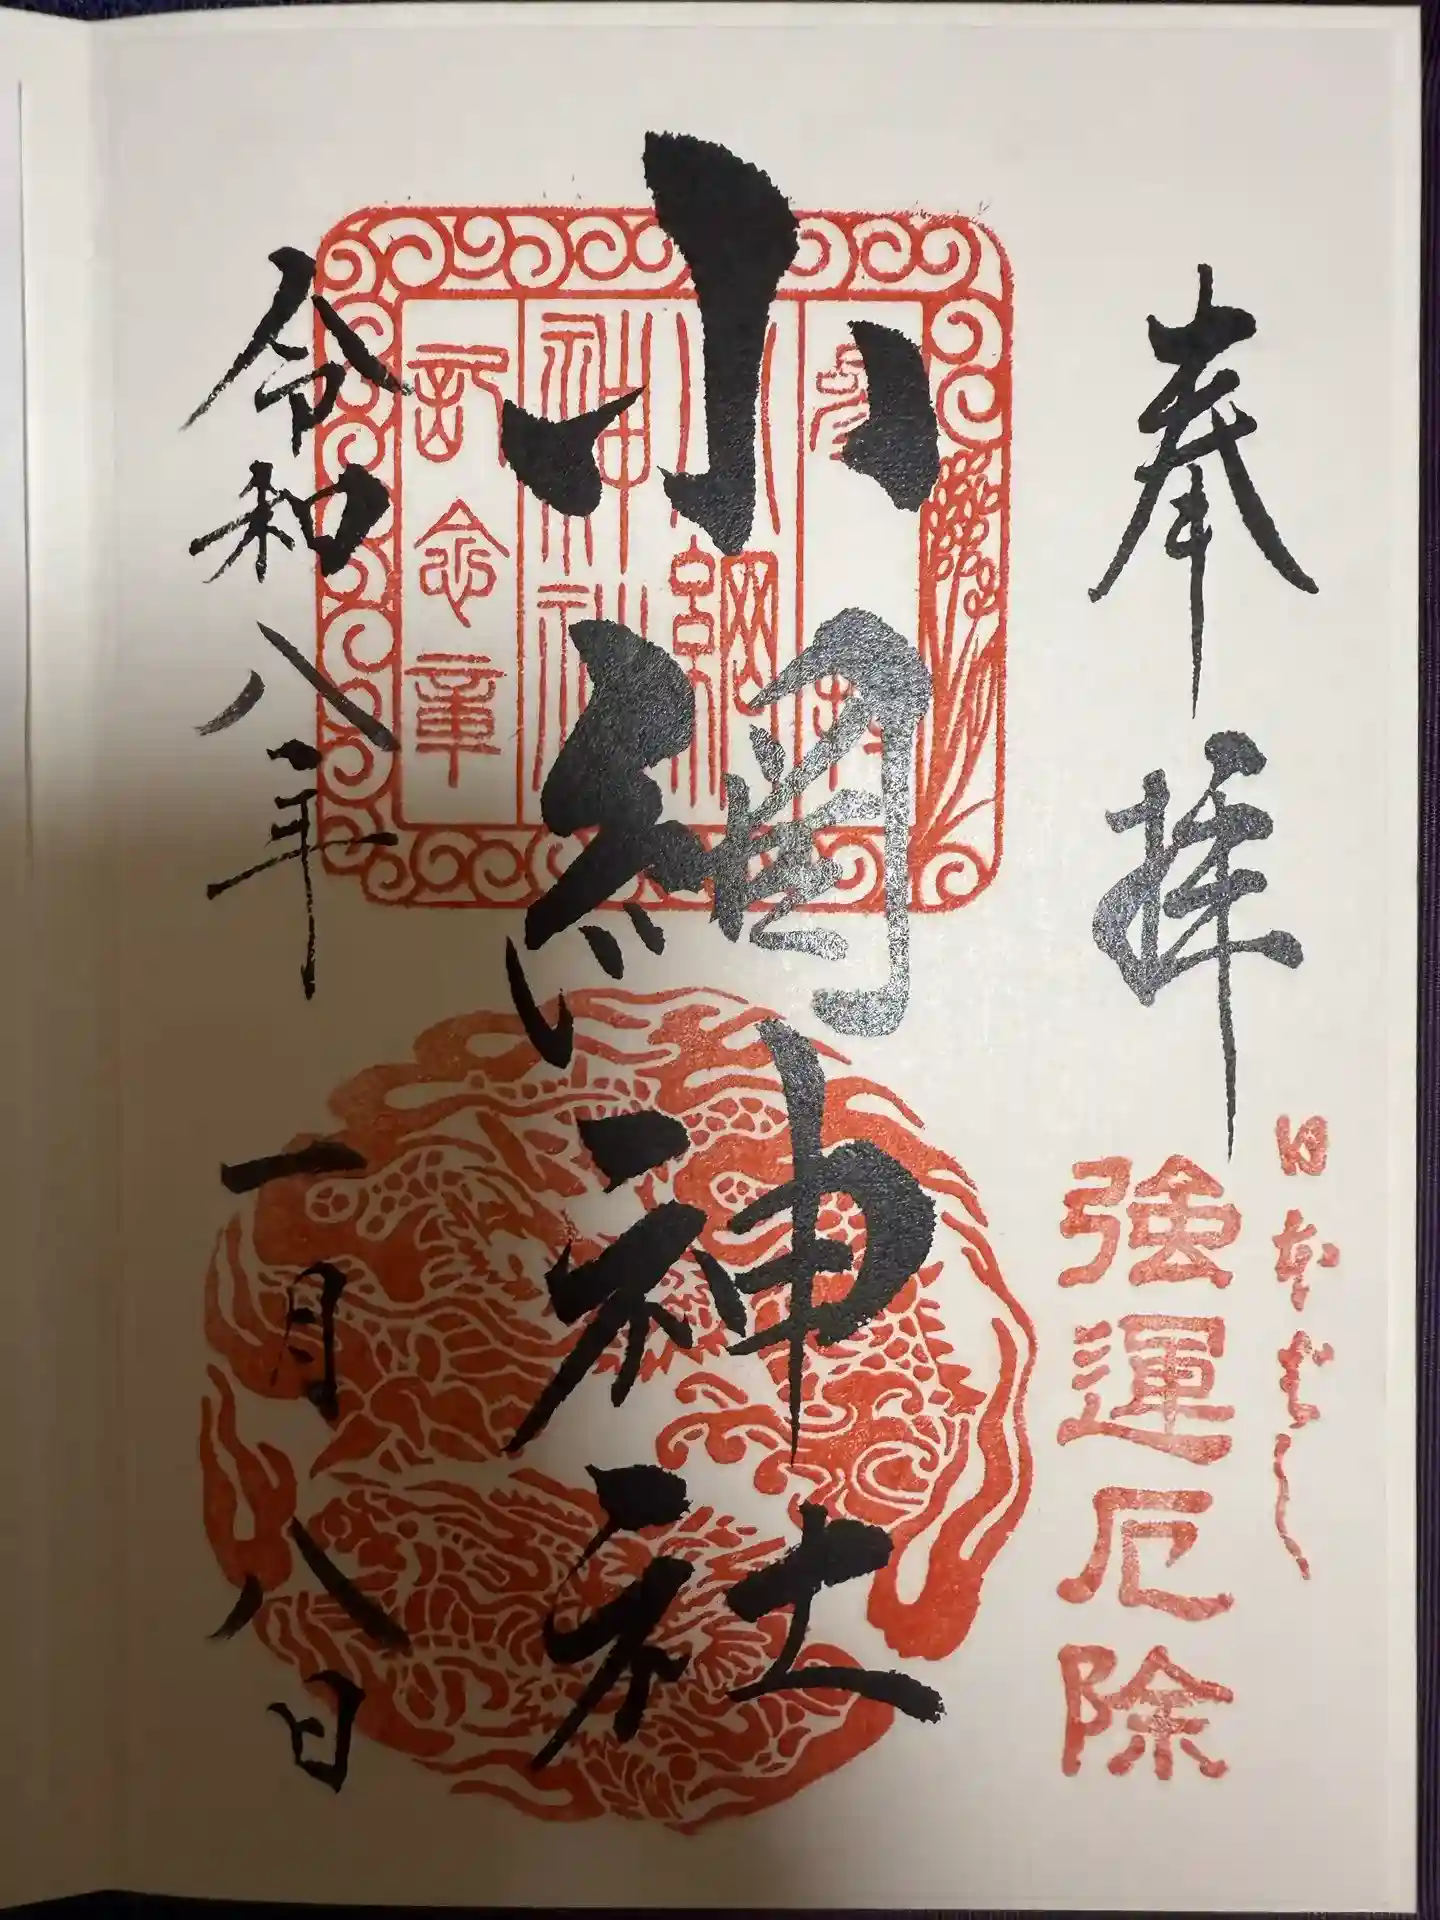 奉拝
日本ばし
強運厄除
小網神社
参拝
小網
神社
記念章
令和八年一月八日